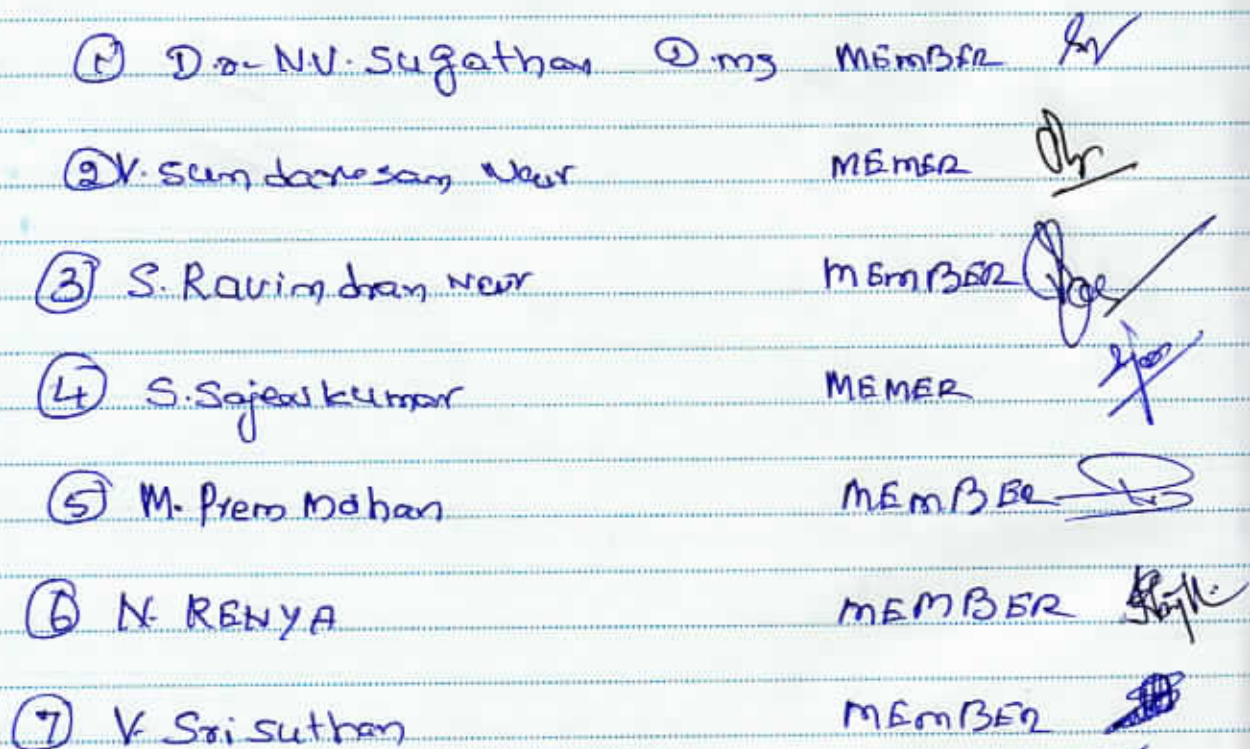 ① Dr. N.V. Sugathan ① ms MEMBER
② V. Sundaresan Nair MEMER
③ S. Ravindran Nair MEMBER
④ S. Sajeev kumar MEMER
⑤ M. Prem Mohan MEMBER
⑥ N. RENYA MEMBER
⑦ V. Sri suthan MEMBER